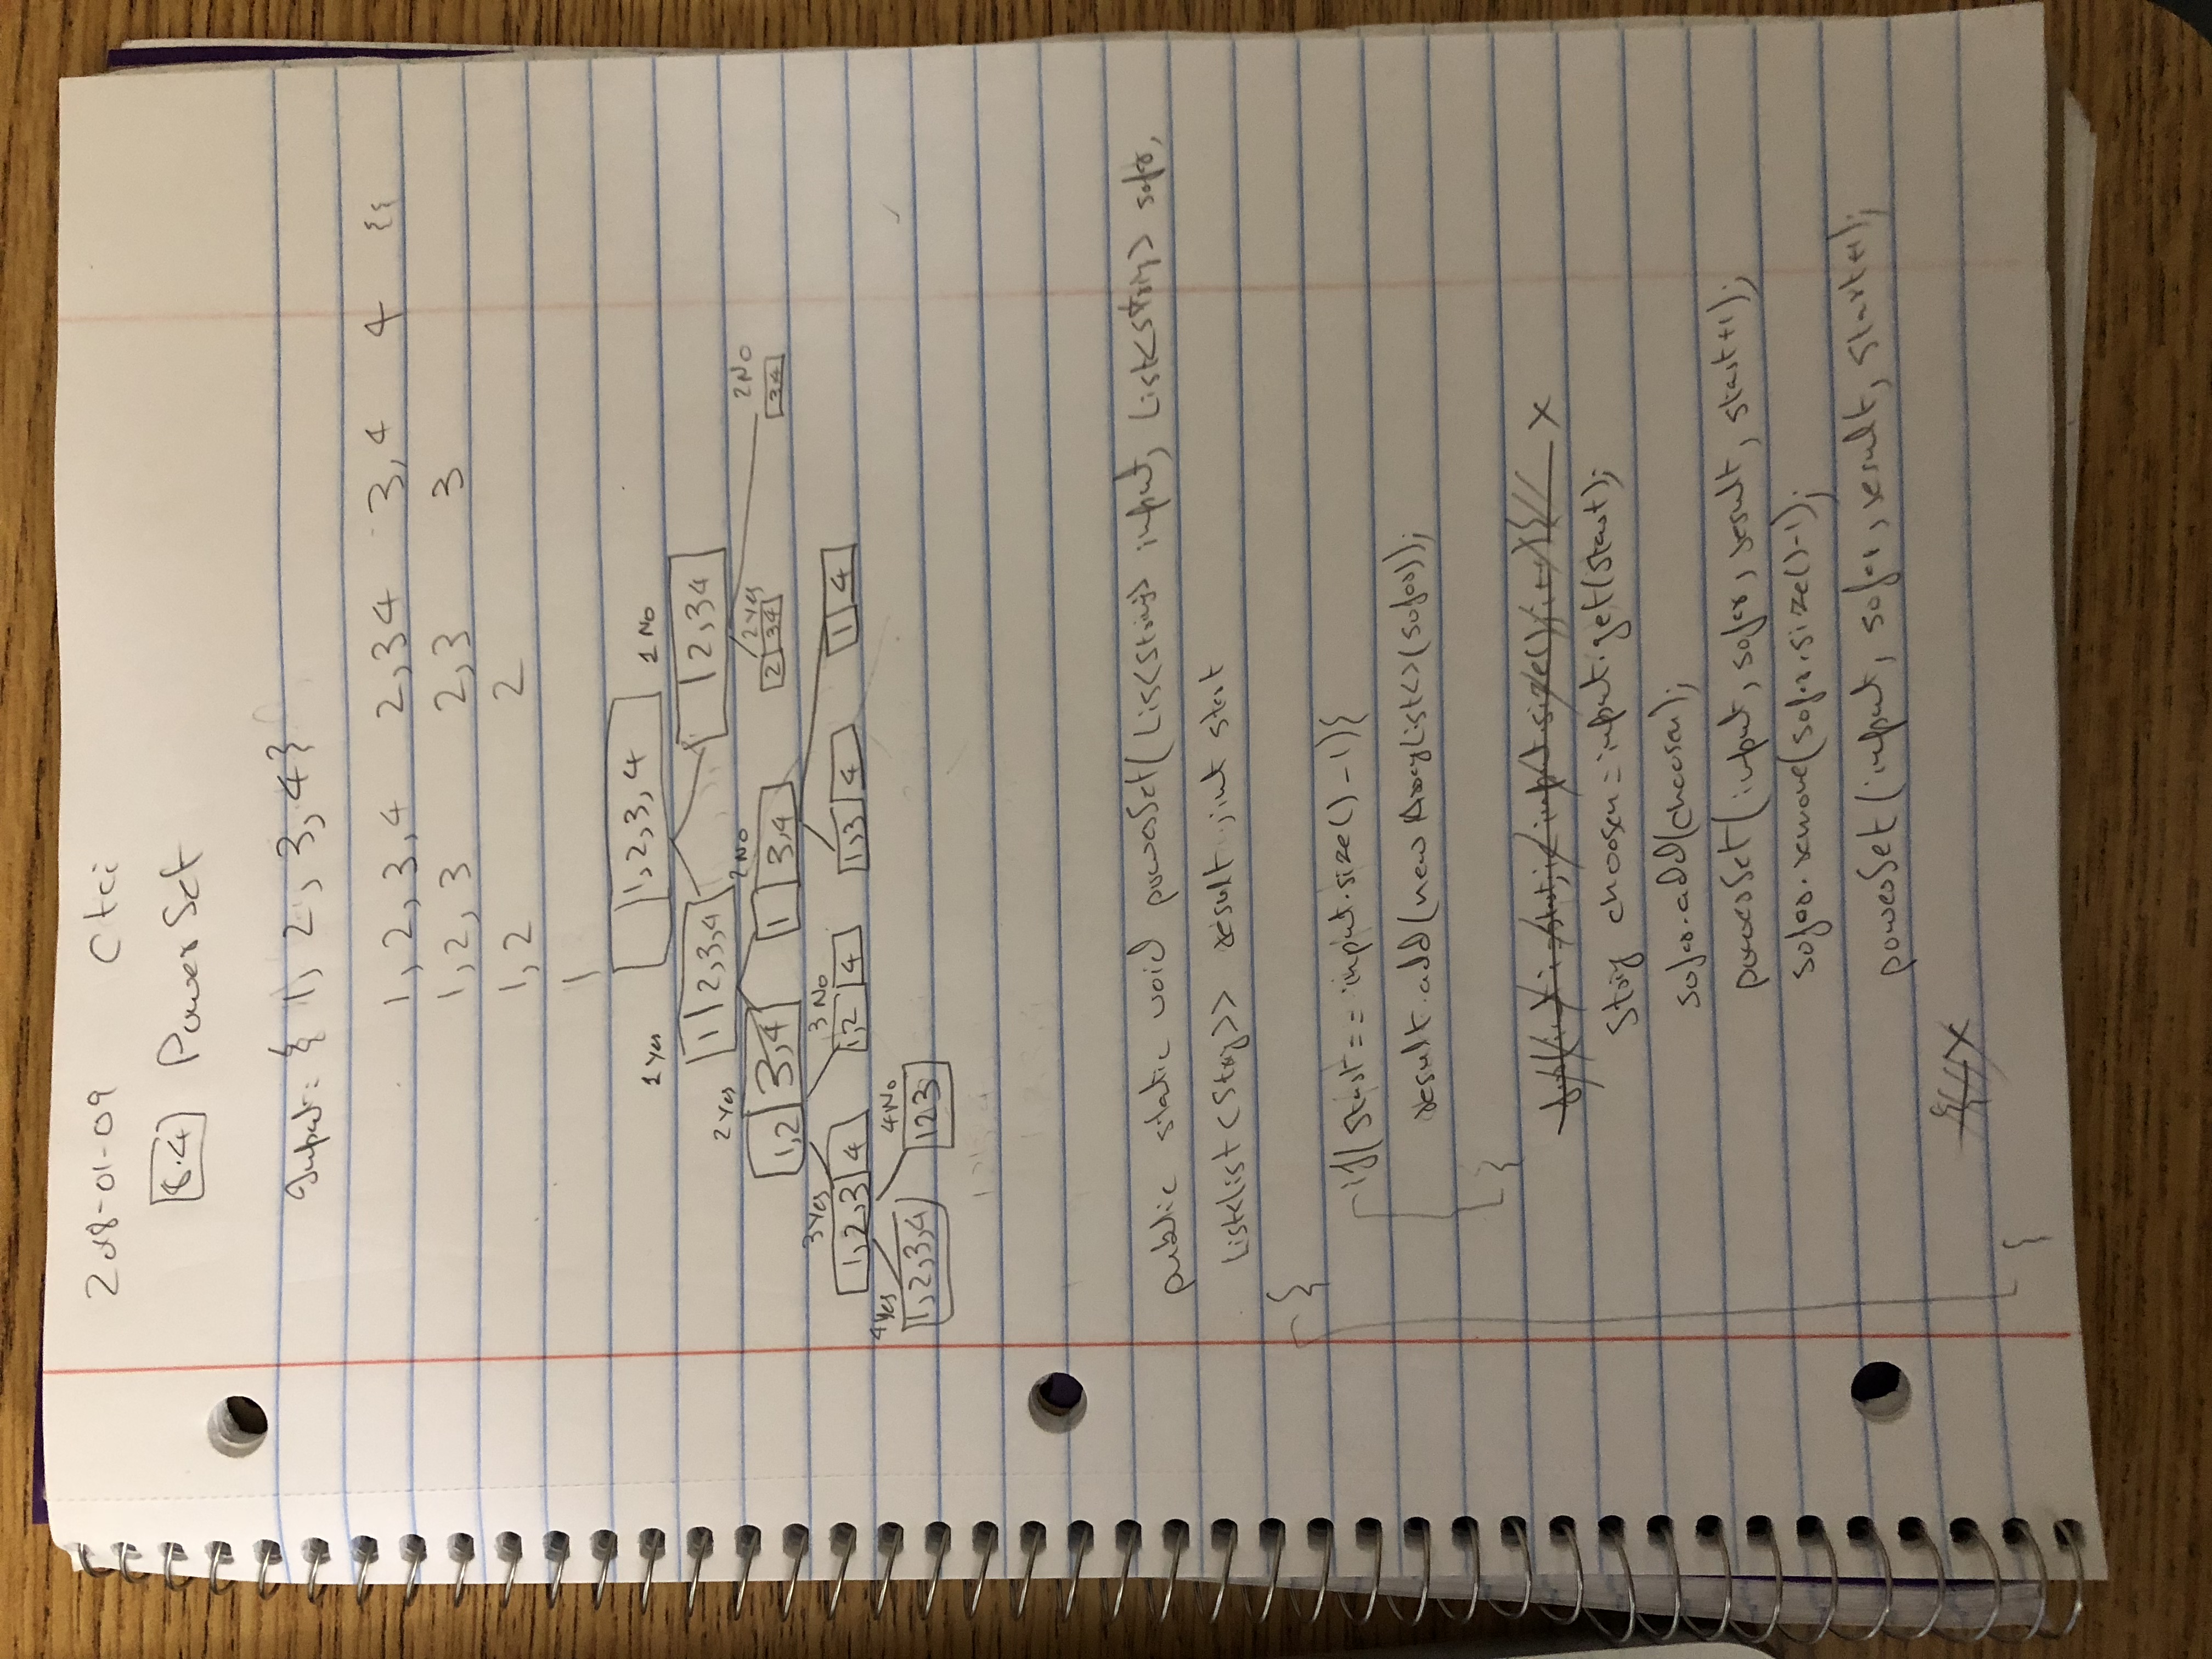 2018-01-09 Ctci
8.4 PowerSet
Input: { 1, 2, 3, 4}
1, 2, 3, 4 2,34 3,4 4 {}
1, 2, 3 2,3 3
1, 2 2
1
1,2,3,4
1 Yes 1 No
1 2,3,4 2,34
2 Yes 2No 2Yes 2No
1,2 3,4 1 3,4 2 34 34
3Yes 3 No
1,2,3 4 1,2 4 1,3 4 1 4
4Yes 4No
1,2,3,4 123
public static void powerSet(List<String> input, List<String> sofar,
List<list<String>> result, int start
{
if(start == input.size() - 1){
result.add(new ArrayList<>(sofar));
}
for(int i = start; i< input.size(); i++){ X
String choosen = input.get(start);
sofar.add(choosen);
powerSet(input, sofar, result, start+1);
sofar.remove(sofar.size()-1);
powerSet(input, sofar, result, start+1);
}